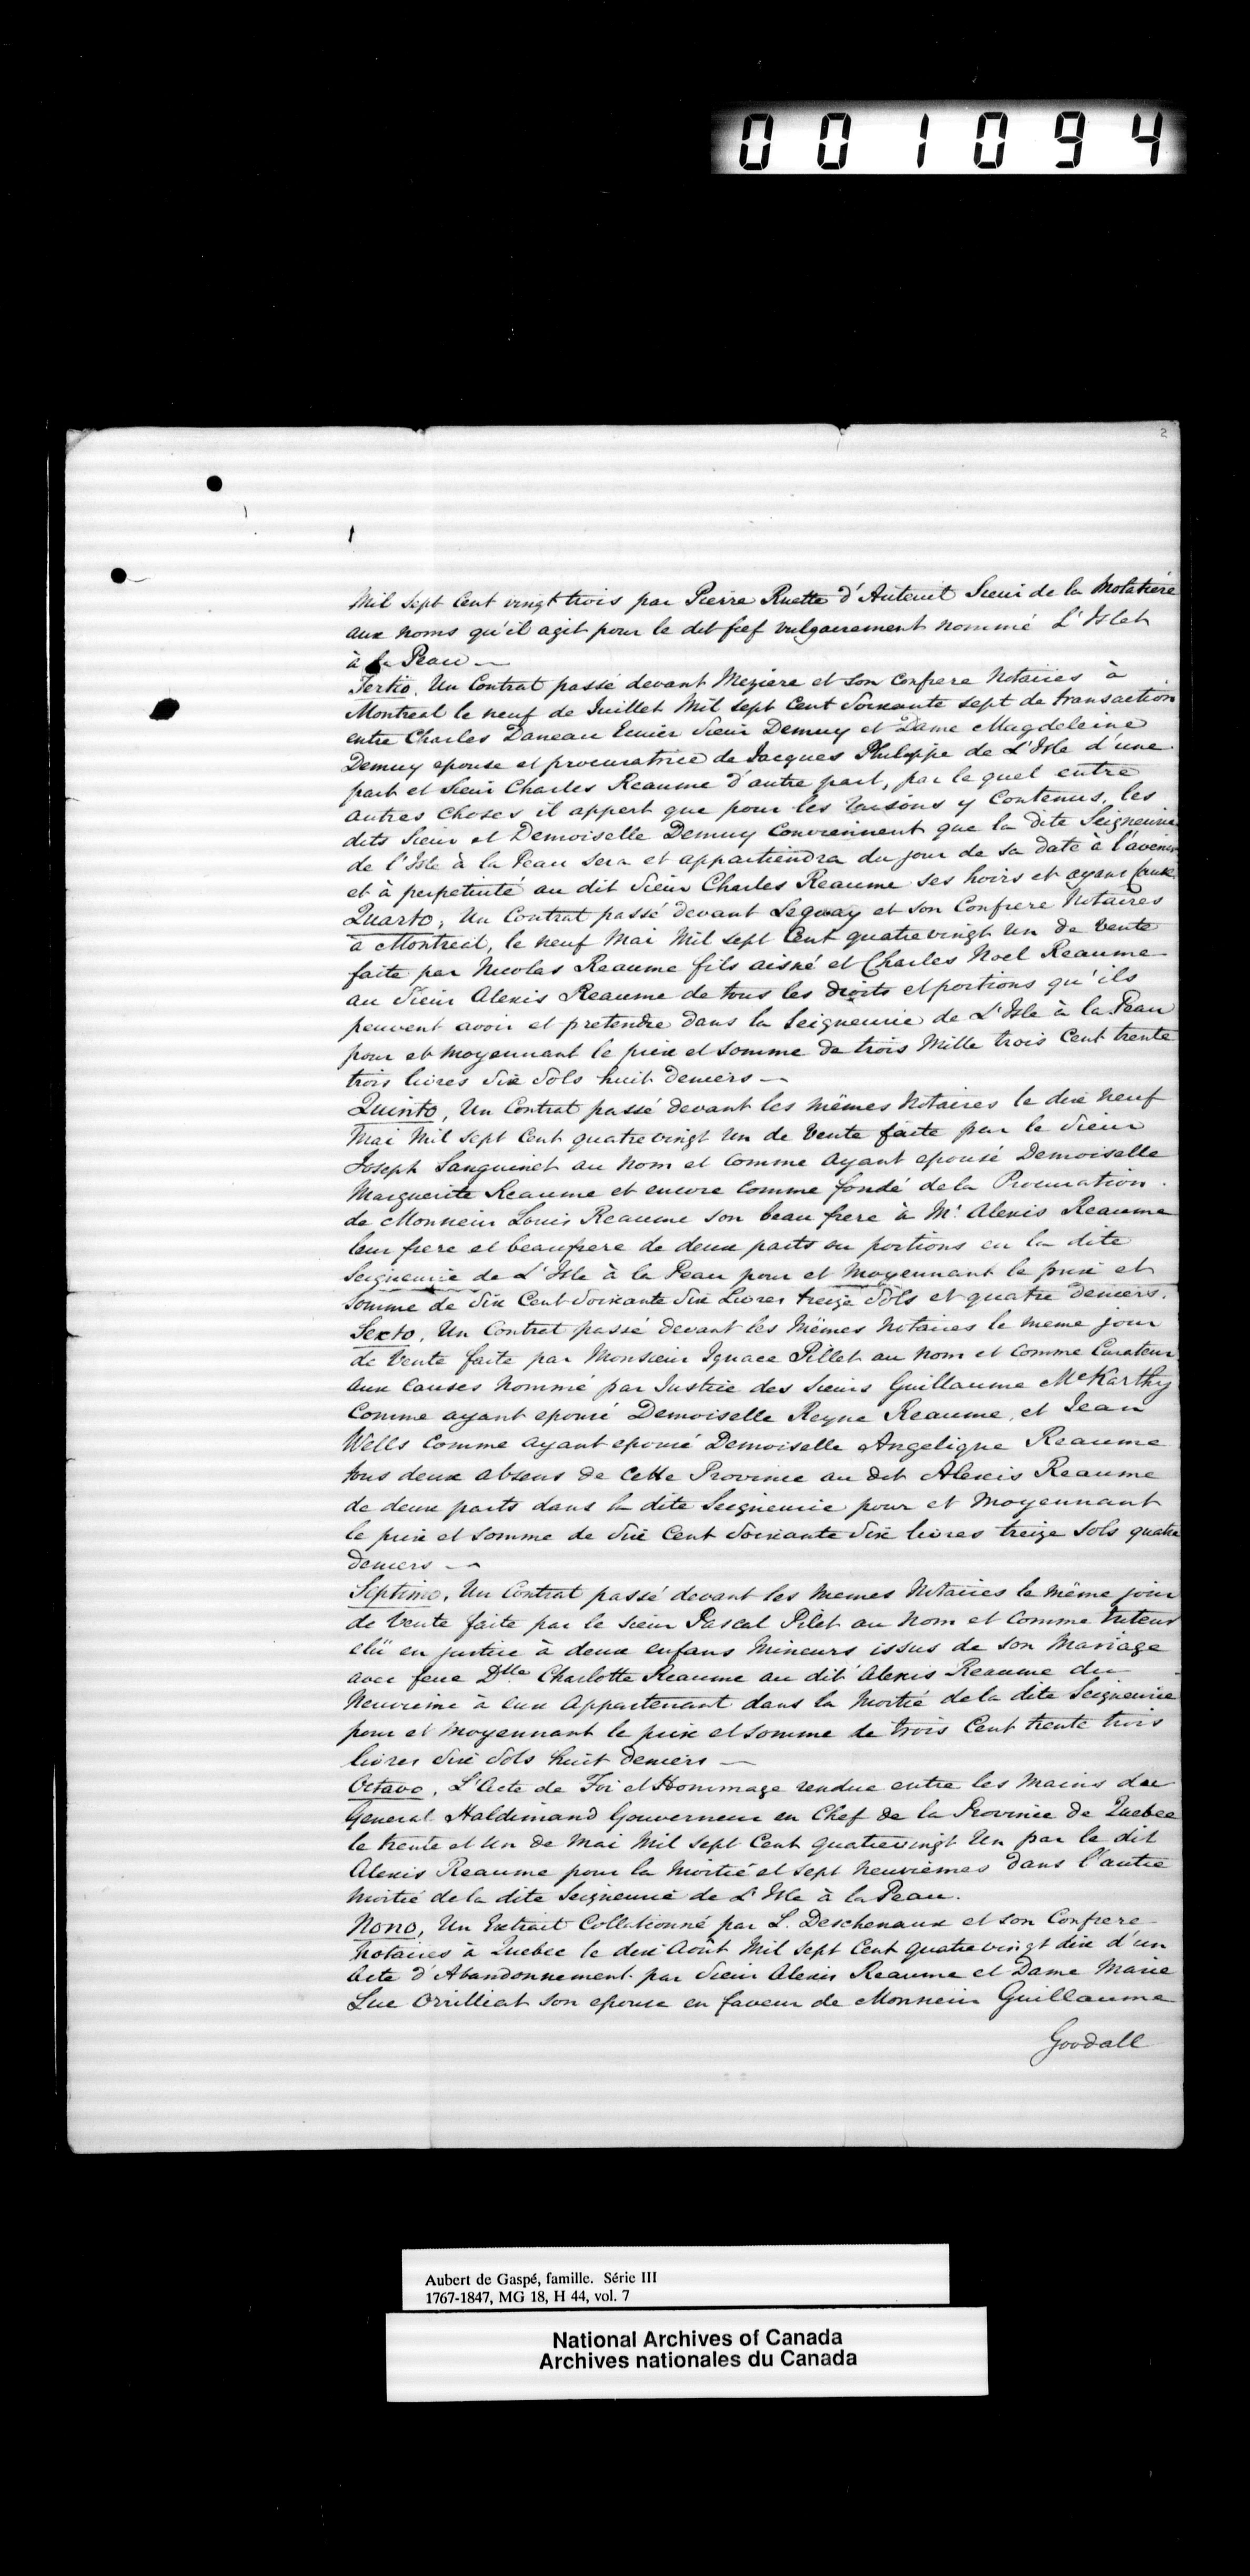 001094
2
1
Mil Sept Cent vingt trois par Pierre Ruette d'Auteuil Sieur de la Molatiere
aux noms qu'il agit pour le dit fief vulgairement nommé L'Islet
à la Peau —
Tertio. Un Contrat passé devant Meziere et son confrere Notaires à
Montreal le neuf de Juillet Mil Sept Cent Soixante sept de transaction
entre Charles Daneau Ecuier Sieur Demuy et Dame Magdeleine
Demuy epouse et procuratrice de Jacques Philippe de L'Isle d'une
part et Sieur Charles Reaume d'autre part, par lequel entre
autres choses il appert que pour les raisons y Contenus, les
dits Sieur et Demoiselle Demuy Conviennent que la dite Seigneurie
de l'Isle à la Peau sera et appartiendra du jour de sa date à l'avenir
et à perpetuité au dit Sieur Charles Reaume ses hoirs et ayans Cause
Quarto, Un Contrat passé devant Leguay et son Confrere Notaires
à Montreal, le neuf Mai Mil sept Cent quatrevingt Un de Vente
faite par Nicolas Reaume fils aisné et Charles Noel Reaume
au Sieur Alexis Reaume de tous les droits et portions qu'ils
peuvent avoir et pretendre dans la Seigneurie de L'Isle à la Peau
pour et moyennant le prix et somme de trois Mille trois Cent trente
trois livres Six Sols huit deniers —
Quinto, Un Contrat passé devant les mêmes Notaires le dix neuf
Mai Mil sept Cent quatrevingt Un de Vente faite par le Sieur
Joseph Sanguinet au nom et comme ayant epousé Demoiselle
Marguerite Reaume et encore comme fondé de la Procuration
de Monsieur Louis Reaume son beau frere à Mr. Alexis Reaume
leur frere et beaufrere de deux parts ou portions en la dite
Seigneurie de L'Isle à la Peau pour et moyennant le prix et
Somme de Six Cent Soixante Six Livres treize Sols et quatre deniers.
Sexto, Un Contrat passé devant les Mêmes Notaires le meme jour
de Vente faite par Monsieur Ignace Pillet au nom et comme Curateur
aux Causes nommé par Justice des Sieurs Guillaume McKarthy
Comme ayant epousé Demoiselle Reyne Reaume, et Jean
Wells Comme ayant epousé Demoiselle Angelique Reaume
tous deux absens de cette Province au dit Alexis Reaume
de deux parts dans la dite Seigneurie pour et moyennant
le prix et Somme de Six Cent Soixante Six livres treize Sols quatre
deniers —
Septimo, Un Contrat passé devant les memes Notaires le même jour
de Vente faite par le Sieur Pascal Pilet au nom et comme tuteur
elû en justice à deux enfans Mineurs issus de son Mariage
avec feue Dlle. Charlotte Reaume au dit Alexis Reaume du
Neuvieme à eux appartenant dans la Moitié de la dite Seigneurie
pour et moyennant le prix et somme de trois Cent trente trois
livres Six Sols huit deniers —
Octavo, L'Acte de Foi et Hommage rendue entre les Mains du
General Haldimand Gouverneur en Chef de la Province de Quebec
le trente et Un de Mai Mil Sept Cent quatrevingt Un par le dit
Alexis Reaume pour la Moitié et Sept Neuviemes dans l'autre
Moitié de la dite Seigneurie de L'Isle à la Peau.
Nono, Un Extrait Collationné par L. Deschenaux et son Confrere
Notaires à Quebec le dix Août Mil Sept Cent quatrevingt dix d'un
Acte d'Abandonnement par Sieur Alexis Reaume et Dame Marie
Luc Orrilliat son epouse en faveur de Monsieur Guillaume
Goodall
Aubert de Gaspé, famille. Série III
1767-1847, MG 18, H 44, vol. 7
National Archives of Canada
Archives nationales du Canada